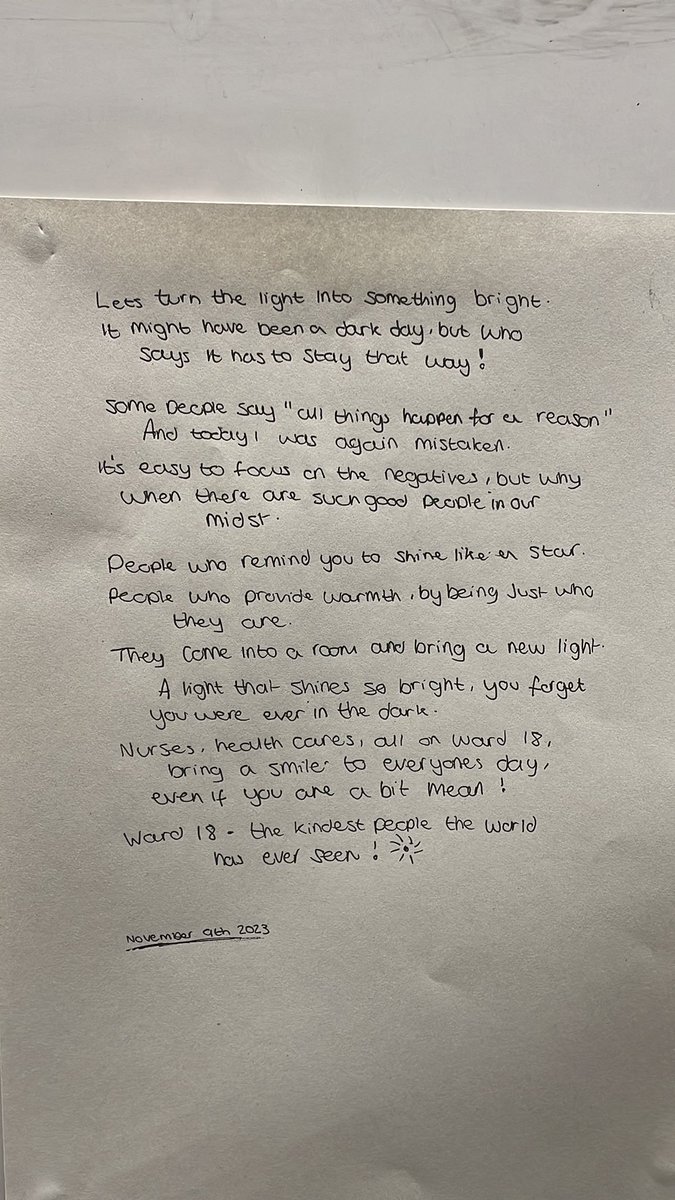 Lets turn the light into something bright.
It might have been a dark day, but who
says it has to stay that way!
Some People say "all things happen for a reason"
And today I was again mistaken.
It's easy to focus on the negatives, but why
when there are such good people in our
midst.
People who remind you to shine like a star.
People who provide warmth, by being Just who
they are.
They come into a room and bring a new light.
A light that shines so bright, you forget
you were ever in the dark.
Nurses, health cares, all on ward 18,
bring a smile to everyones day,
even if you are a bit mean!
Ward 18 - the kindest people the world
has ever seen!
November 9th 2023